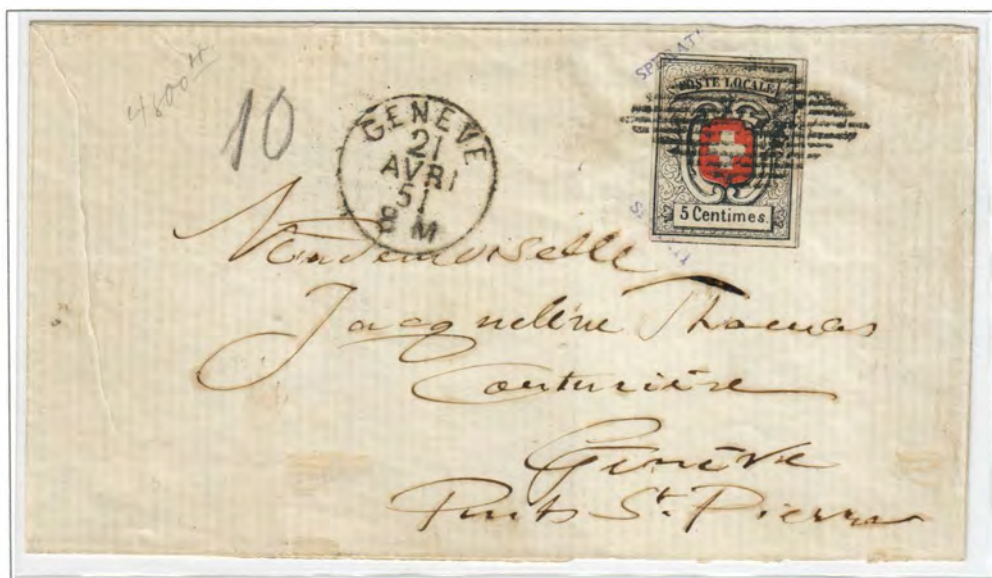 4800
10
GENÈVE
21
AVRI
51
8 M
SPERATI
POSTE LOCALE
5 Centimes.
Mademoiselle
Jacqueline Thomas
Couturière
Genève
Puits St. Pierre